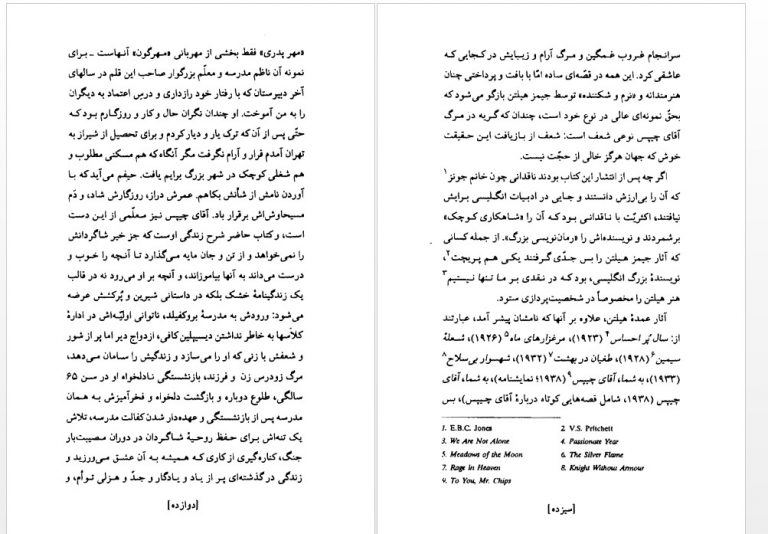 «مهر پدری» فقط بخشی از مهربانی «مهرگون» آنهاست ـ برای
نمونه آن ناظم مدرسه و معلّم بزرگوار صاحب این قلم در سالهای
آخر دبیرستان که با رفتار خود رازداری و درسِ اعتماد به دیگران
را به من آموخت. او چندان نگران حال و کار و روزگارم بود که
حتّی پس از آن که ترک یار و دیار کردم و برای تحصیل از شیراز به
تهران آمدم قرار و آرام نگرفت مگر آنگاه که هم مسکنی مطلوب و
هم شغلی کوچک در شهر بزرگ برایم یافت. حیفم می‌آید که با
آوردن نامش از شأنش بکاهم. عمرش دراز، روزگارش شاد، و دَم
مسیحاوش‌اش برقرار باد. آقای چیپس نیز معلّمی از این دست
است، و کتاب حاضر شرح زندگی اوست که جز خیر شاگردانش
را نمی‌خواهد و از تن و جان مایه می‌گذارد تا آنچه را خوب و
درست می‌داند به آنها بیاموزاند، و آنچه بر او می‌رود نه در قالب
یک زندگینامهٔ خشک بلکه در داستانی شیرین و پُرکشش عرضه
می‌شود: ورودش به مدرسهٔ بروکفیلد، ناتوانی اولیّه‌اش در ادارهٔ
کلاسها به خاطر نداشتن دیسیپلین کافی، ازدواج دیر اما پر از شور
و شعفش با زنی که او را می‌سازد و زندگیش را سامان می‌دهد،
مرگ زودرس زن و فرزند، بازنشستگی نادلخواه او در سن ۶۵
سالگی، طلوع دوباره و بازگشت دلخواه و فخرآمیزش به همان
مدرسه پس از بازنشستگی و عهده‌دار شدن کفالت مدرسه، تلاش
یک تنه‌اش برای حفظ روحیهٔ شاگردان در دوران مصیبت‌بار
جنگ، کناره‌گیری از کاری که همیشه به آن عشق می‌ورزید و
زندگی در گذشته‌ای پر از یاد و یادگار و جدّ و هزلی توأم، و
[دوازده]
سرانجام غروب غمگین و مرگ آرام و زیبایش در کجایی که
عاشقی کرد. این همه در قصّه‌ای ساده امّا با بافت و پرداختی چنان
هنرمندانه و «نرم و شکننده» توسط جیمز هیلتن بازگو می‌شود که
بحقّ نمونه‌ای عالی در نوع خود است، چندان که گریه در مرگ
آقای چیپس نوعی شعف است: شعف از بازیافت این حقیقت
خوش که جهان هرگز خالی از حجّت نیست.
اگر چه پس از انتشار این کتاب بودند ناقدانی چون خانم جونز۱
که آن را بی‌ارزش دانستند و جایی در ادبیات انگلیسی برایش
نیافتند، اکثریّت با ناقدانی بود که آن را «شاهکاری کوچک»
برشمردند و نویسنده‌اش را «رمان‌نویسی بزرگ». از جمله کسانی
که آثار جیمز هیلتن را بس جدّی گرفتند یکی هم پریچت۲،
نویسندهٔ بزرگ انگلیسی، بود که در نقدی بر ما تنها نیستیم۳
هنر هیلتن را مخصوصاً در شخصیت‌پردازی ستود.
آثار عمدهٔ هیلتن، علاوه بر آنها که نامشان پیشر آمد، عبارتند
از: سال پُر احساس۴ (۱۹۲۳)، مرغزارهای ماه۵ (۱۹۲۶)، شعلهٔ
سیمین۶ (۱۹۲۸)، طغیان در بهشت۷ (۱۹۳۲)، شهسوار بی‌سلاح۸
(۱۹۳۳)، به شما، آقای چیپس۹ (۱۹۳۸؛ نمایشنامه)، به شما، آقای
چیپس (۱۹۳۸، شامل قصه‌هایی کوتاه دربارهٔ آقای چیپس)، بس
1. E.B.C. Jones 2. V.S. Pritchett
3. We Are Not Alone 4. Passionate Year
5. Meadows of the Moon 6. The Silver Flame
7. Rage in Heaven 8. Knight Without Armour
9. To You, Mr. Chips
[سیزده]